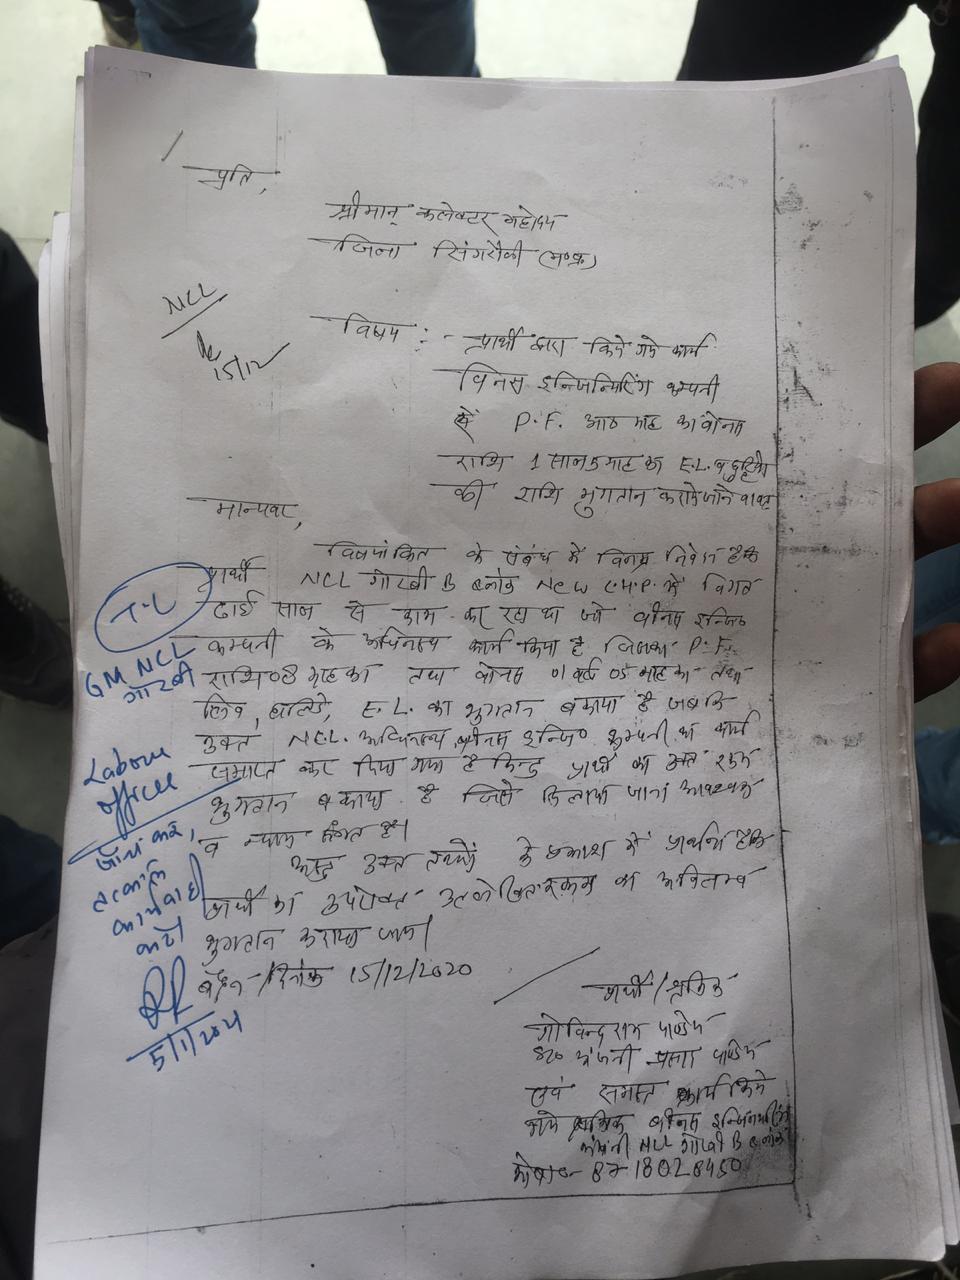 प्रति,
श्रीमान् कलेक्टर महोदय
जिला सिंगरौली (म०प्र०)
NCL
15/12
विषय :- प्रार्थी द्वारा किये गये कार्य
विनस इन्जिनियरिंग कम्पनी
में P.F. आठ माह का वोनस
राशि 1 साल 5 माह का E.L. व छुट्टियो
की राशि भुगतान कराये जाने वावत
मान्यवर,
विषयांकित के संबंध में विनम्र निवेदन है कि
प्रार्थी NCL गोरबी B ब्लोक NEW C.H.P. में विगत
ढाई साल से काम कर रहा था जो वीनस इन्जि०
कम्पनी के अधिनस्थ कार्य किया है जिसका P.F.
राशि 08 माह का तथा वोनस 01 वर्ष 05 माह का तथा
लिव, हालिडे, E.L. का भुगतान बकाया है जबकि
उक्त NCL. अधिनस्थ वीनस इन्जि० कम्पनी का कार्य
समाप्त कर दिया गया है किन्तु प्रार्थी का उक्त रकम
भुगतान बकाया है जिसे दिलाया जाना आवश्यक
व न्याय संगत है।
अस्तु उक्त तथ्यों के प्रकाश में प्रार्थना है कि
प्रार्थी का उपरोक्त उल्लेखित रकम का अविलम्ब
भुगतान कराया जाय।
बैढ़न - दिनांक 15/12/2020
T.L
GM NCL
गोरबी
Labour
officer
जाँच करें,
तत्काल
कार्यवाही
करें
5/1/2021
प्रार्थी / श्रमिक
गोविन्द राम पाण्डेय
S/o अंजनी प्रसाद पाण्डेय
एवं समस्त कार्य किये
गये श्रमिक वीनस इन्जिनियरिंग
कंपनी NCL गोरबी B ब्लोक
मोबा०- 87 18028450